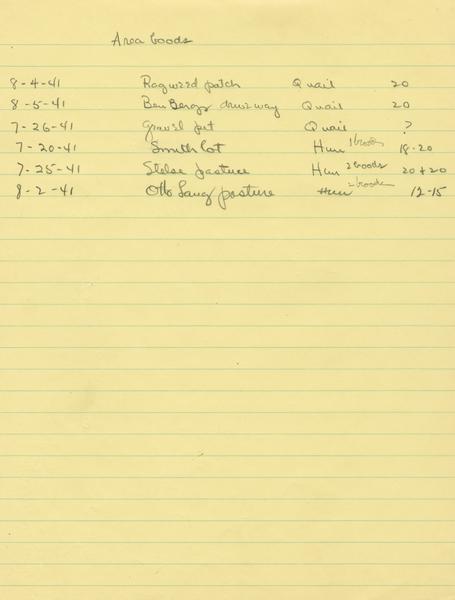 Area boods
8-4-41 Ragweed patch Quail 20
8-5-41 Ben Bergs driveway Quail 20
7-26-41 Gravel pit Quail ?
7-20-41 Smith lot Hun 1 brood 18-20
7-25-41 pasture Hun 2 broods 20+20
8-2-41 Otto Lang pasture Hun 2 broods 12-15